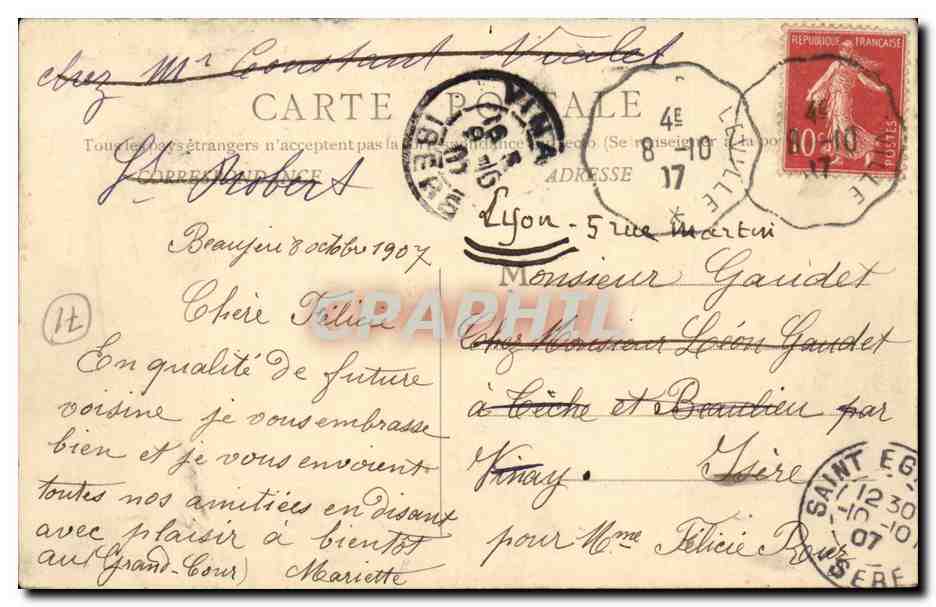 chez Mr Constant Violet
CARTE POSTALE
Tous les pays étrangers n'acceptent pas la correspondance au recto (Se renseigner à la poste)
St Robert
CORRESPONDANCE
ADRESSE
REPUBLIQUE FRANÇAISE
10c
POSTES
VINAY
ISERE
4E
8-10
17
LEVILLE
4E
8-10
17
Lyon - 5 rue Martin
Beaujeu 8 octobre 1907
Chère Félicie
En qualité de future
voisine je vous embrasse
bien et je vous envoient
toutes nos amitiées en disant
avec plaisir à bientot
au (Grand-Cour) Mariette
17
Monsieur Gaudet
Chez Monsieur Léon Gaudet
à Têche et Beaulieu par
Vinay. Isère
pour Mme Félicie Roux
SAINT EG
12 30
10-10
07
ISERE
CPAPHIL